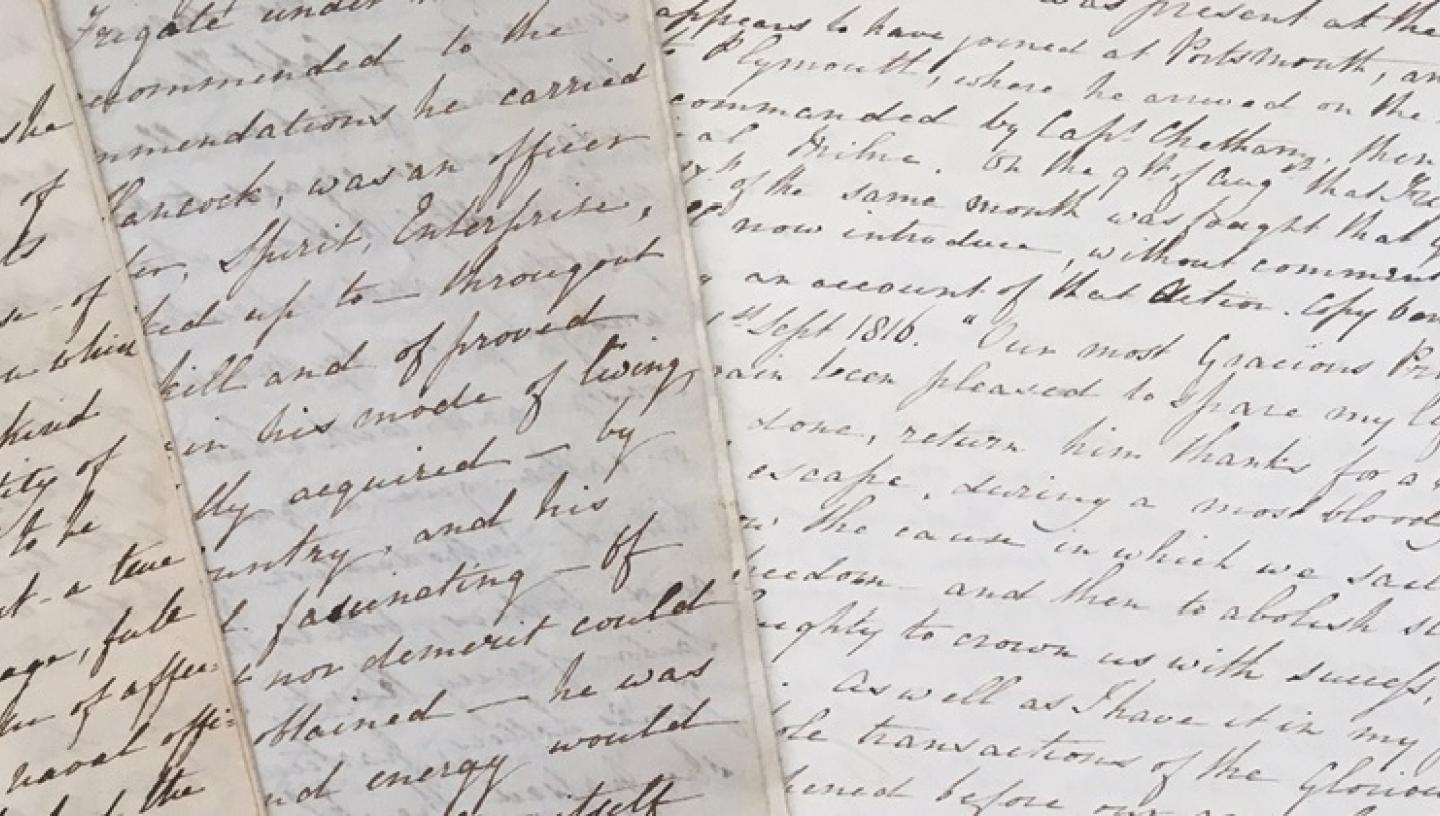 she
of
ts
of
when
kind
tity of
to be
a true
age, full
of affec=
naval offi=
the
Frigate under
ecommended to the
mmendations he carried
Hancock, was an officer
ter, Spirit, Enterprise,
ked up to — througout
kill and of proved
in his mode of living,
lly acquired — by
untry, and his
fascinating — Of
nor demerit could
obtained — he was
nd energy would
itself
was present at the
appears to have joined at Portsmouth, an
to Plymouth, where he arrived on the
commanded by Capt Chetham, then
al Milne. On the 9th of Aug that
of the same month was fought that
now introduce, without comment
an account of that Action. Copy
1st Sept 1816. "Our most Gracious Pr
ain been pleased to spare my
done, return him thanks for a
escape, during a most blood
the cause in which we sail
reedom and then to abolish
ighty to crown us with success,
As well as I have it in my
ole transactions of the Gloriou
pened before our